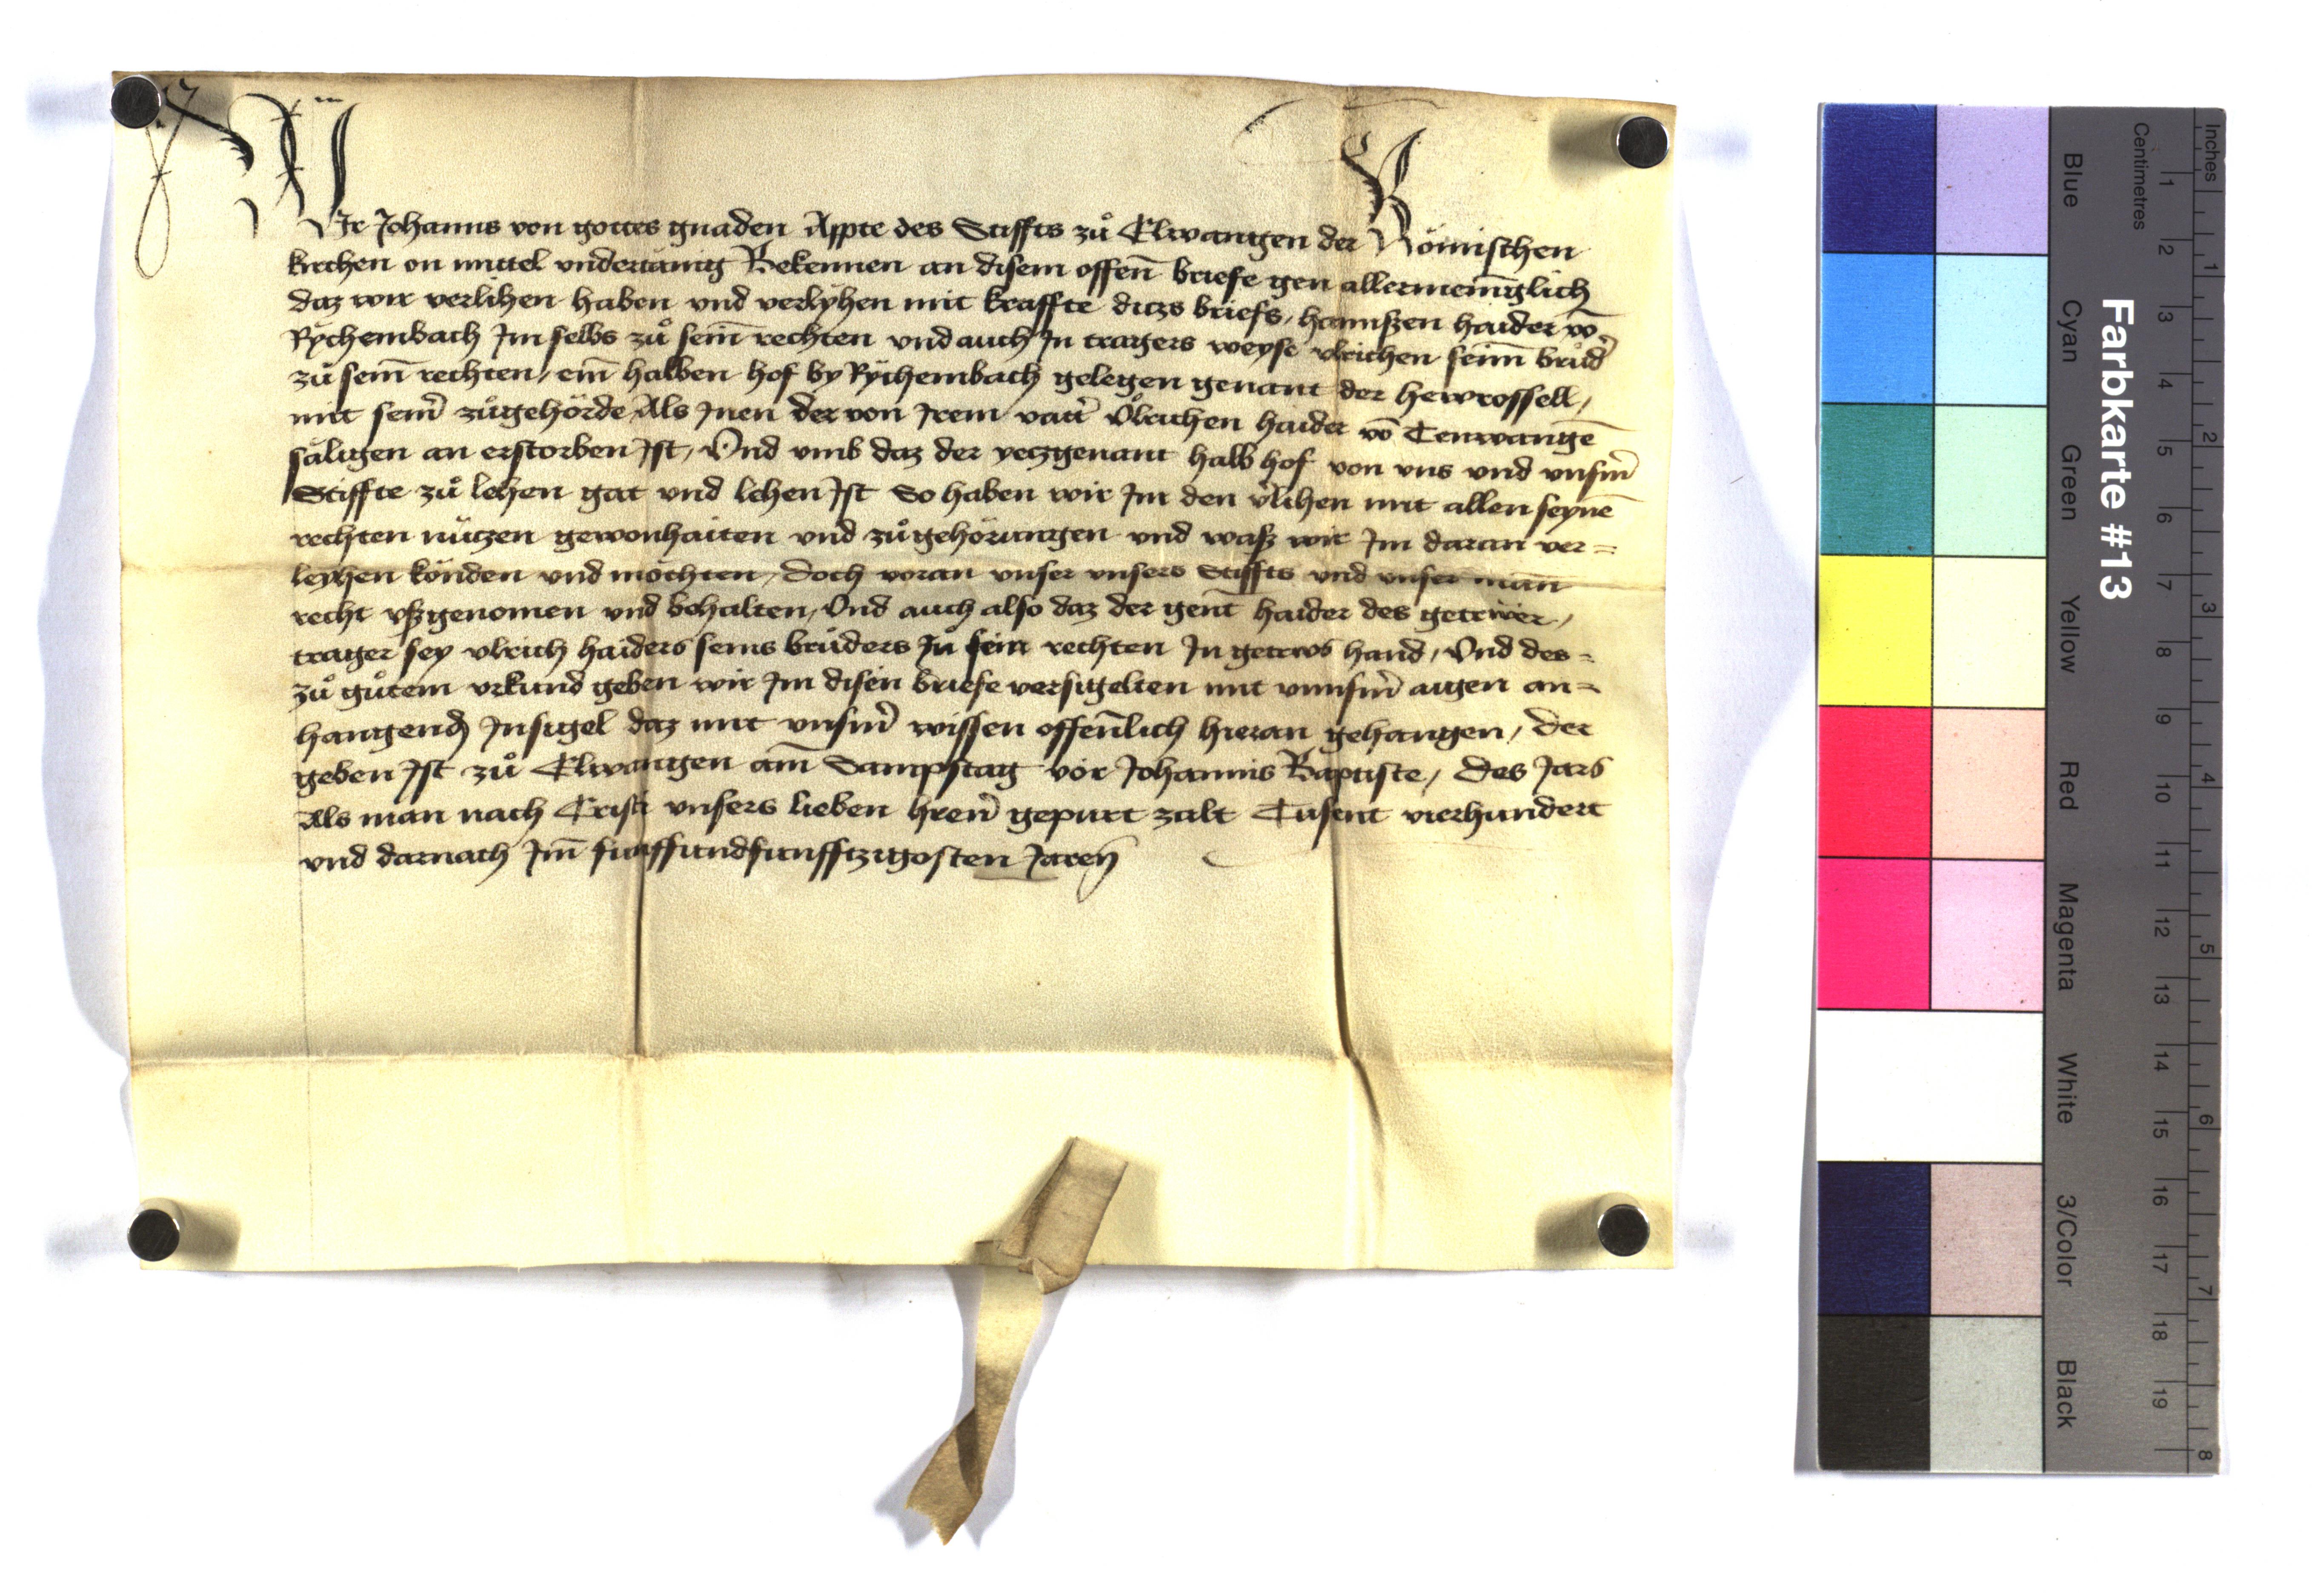 Wir Johanns von gottes gnaden Appte des Stiffts zů Elwangen der Römischen
kirchen on mittel vndertänig Bekennen an disem offen̄ briefe gen allermeniglich
daz wir verlihen haben vnd verlyhen mit kraffte ditzs briefs, hannszen haider vō
Rychembach Im selbs zů sein̄ rechten vnd auch In tragers weyse vlrichen seinn̄ brůd̄
zů sein̄ rechten, ein̄ halben hof by Rychembach gelegen genant der hewrossell,
mit sein̄ zůgehörde Als Inen der von Irem vatt̄ Vlrichen haider vō Tenwangē
säligen an erstorben Ist, Vnd vmb daz der yeczgenant halb hof von vns vnd vnsm̄
Stiffte zů lehen gat vnd lehen Ist So haben wir Im den v̄lihen mit allen seynē
rechten nützen gewonhaiten vnd zůgehörungen vnd wasz wir Im daran ver=
leyhen könden vnd möchten, doch voran vnser vnsers Stiffts vnd vnser mann
recht vszgenomen vnd behalten, Vnd auch also daz der gen̄t haider des getrwer,
trager sey vlrich haiders seins brůders zů sein rechten In getrws hand, Vnd des=
zů gůtem vrkund geben wir Im disen briefe versigelten mit vnnsm̄ aigen an=
hangend Insigel daz mit vnsm̄ wissen offenlich hieran gehangen, Der
geben Ist zů Elwangen am̄ Sampstag vor Johannis Baptiste, Des Jars
Als man nach Cristi vnsers lieben hren̄ gepurt zalt Tusent vierhundert
vnd darnach Im̄ funffundfunfftzigosten Jaren
Farbkarte #13
Inches 1 2 3 4 5 6 7 8
Centimetres 1 2 3 4 5 6 7 8 9 10 11 12 13 14 15 16 17 18 19
Blue Cyan Green Yellow Red Magenta White 3/Color Black